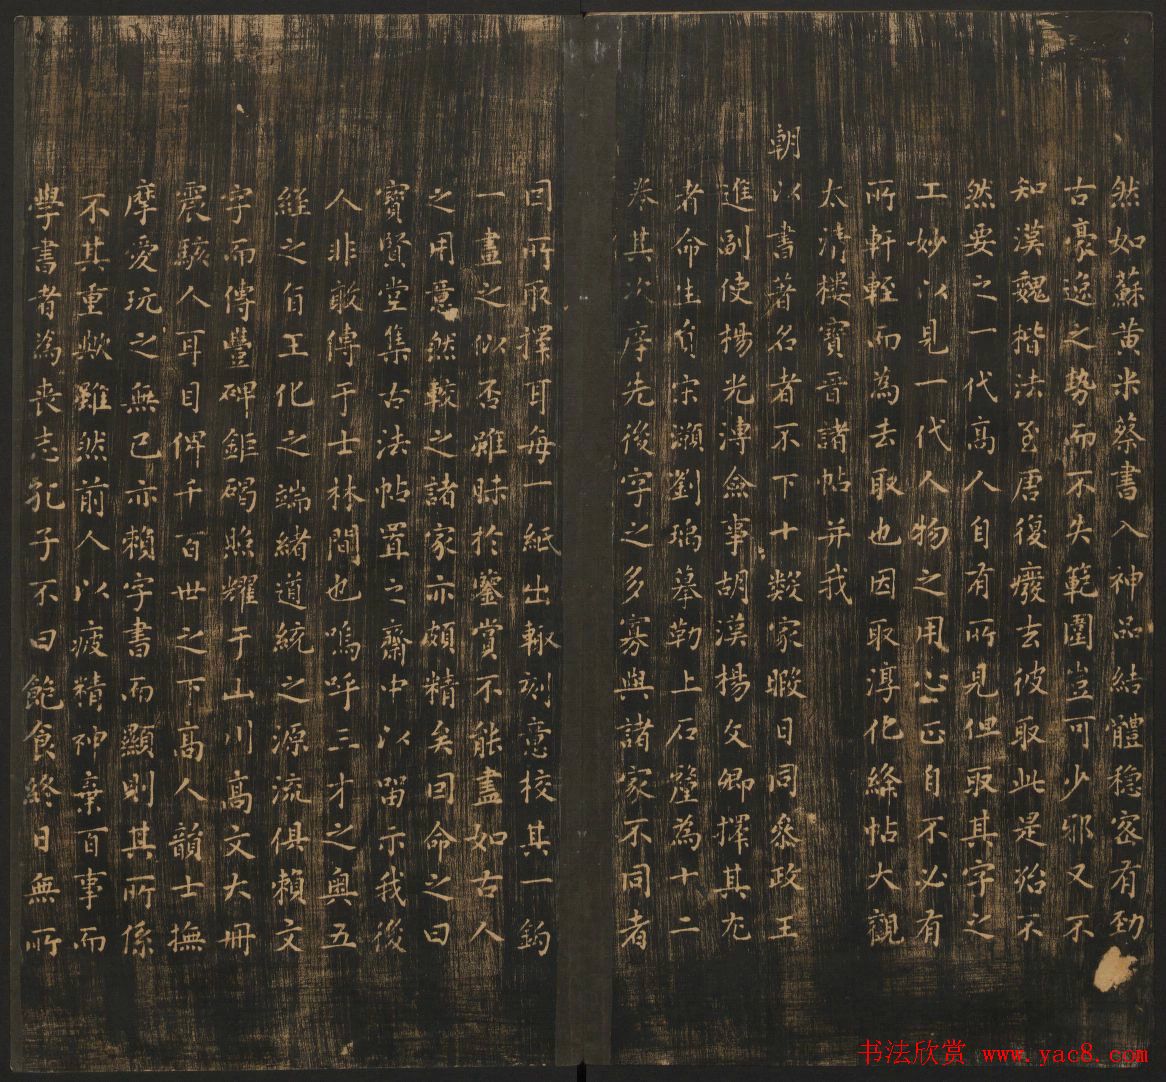 然如蘇黃米蔡書入神品結體穩密有勁
古豪逸之勢而不失範圍豈可少邪又不
知漢魏楷法至唐復癈去彼取此是殆不
然要之一代高人自有所見但取其字之
工妙以見一代人物之用心正自不必有
所軒輊而為去取也因取淳化絳帖大觀
太清樓寶晉諸帖并我
朝以書著名者不下十數家暇日同叅政王
進副使楊光溥僉事胡漢楊文卿擇其尤
者命生員宋灝劉瑀摹勒上石釐為十二
卷其次序先後字之多寡與諸家不同者
因所取擇耳每一紙出輙刻意校其一鈎
一畫之似否雖昧於鑒賞不能盡如古人
之用意然較之諸家亦頗精矣因命之曰
寶賢堂集古法帖置之齋中以留示我後
人非敢傳于士林間也嗚呼三才之奥五
經之旨王化之端緒道統之源流俱賴文
字而傳豐碑鉅碣照耀于山川高文大冊
震駭人耳目俾千百世之下高人韻士撫
摩愛玩之無已亦賴字書而顯則其所係
不其重歟雖然前人以疲精神棄百事而
學書者為喪志孔子不曰飽食終日無所
书法欣赏 www.yac8.com